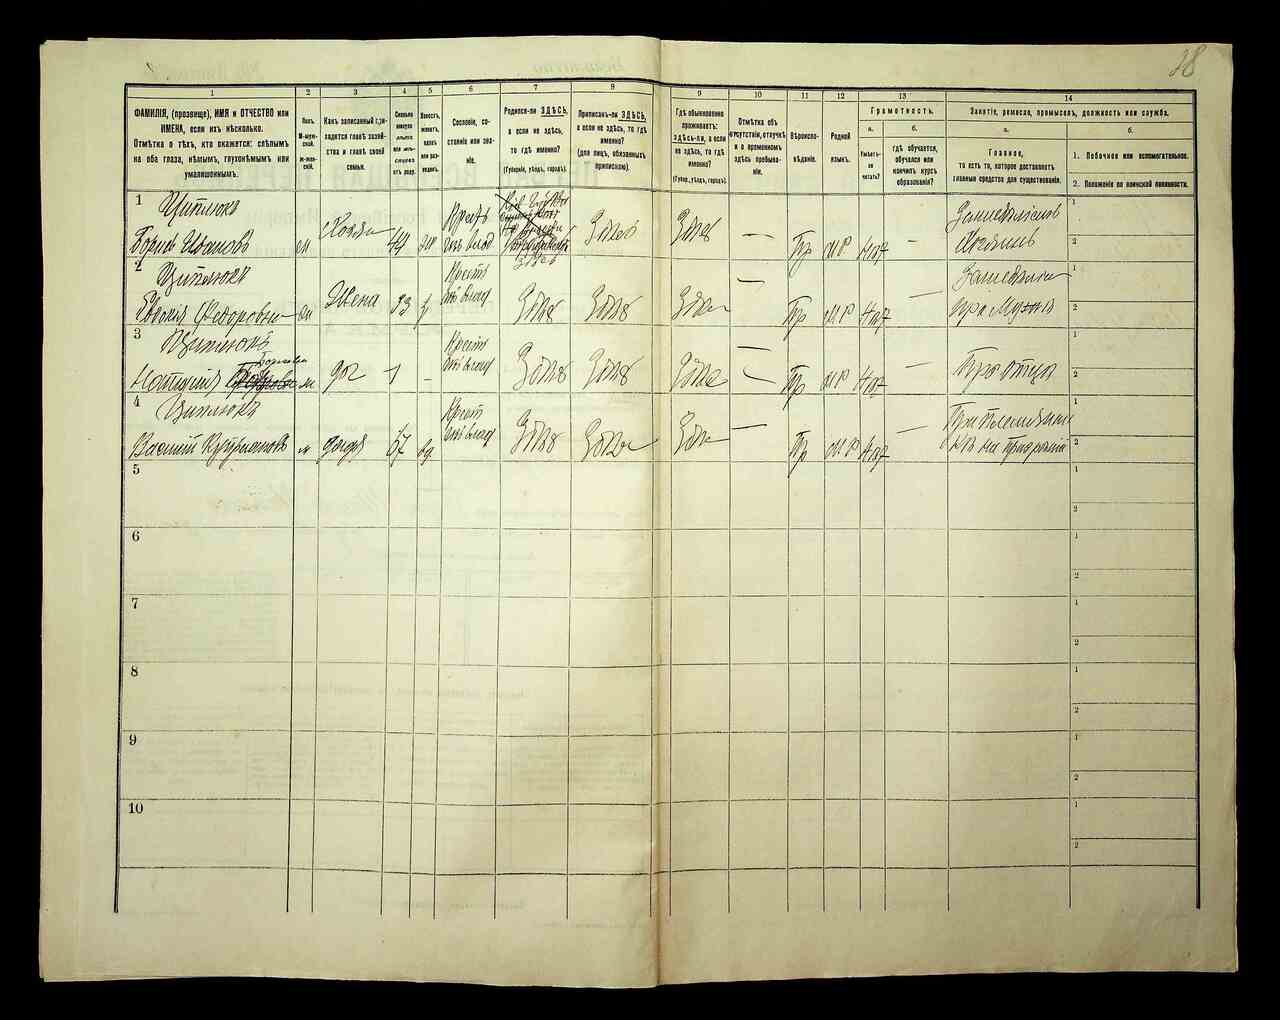 38
1 2 3 4 5 6 7 8 9 10 11 12 13 14
ФАМИЛІЯ, (прозвище), ИМЯ и ОТЧЕСТВО или
ИМЕНА, если ихъ нѣсколько.
Отмѣтка о тѣхъ, кто окажется: слѣпымъ
на оба глаза, нѣмымъ, глухонѣмымъ или
умалишоннымъ.
Полъ.
М-муж-
ской.
Ж-жен-
скій.
Какъ записанный при-
ходится главѣ хозяй-
ства и главѣ своей
семьи.
Сколько
минуло
лѣтъ
или мѣ-
сяцевъ
отъ роду.
Холостъ,
женатъ,
вдовъ
или раз-
веденъ.
Сословіе, со-
стояніе или зва-
ніе.
Родился-ли ЗДѢСЬ,
а если не здѣсь,
то гдѣ именно?
(Губернія, уѣздъ, городъ).
Приписанъ-ли ЗДѢСЬ,
а если не здѣсь, то гдѣ
именно?
(для лицъ, обязанныхъ
припискою).
Гдѣ обыкновенно
проживаетъ:
здѣсь-ли, а если
не здѣсь, то гдѣ
именно?
(Губер., уѣздъ, городъ).
Отмѣтка объ
отсутствіи, отлучкѣ
и о временномъ
здѣсь пребыва-
ніи.
Вѣроиспо-
вѣданіе.
Родной
языкъ.
Грамотность.
а. б.
Умѣетъ-
ли
читать?
гдѣ обучается,
обучался или
кончилъ курсъ
образованія?
Занятіе, ремесло, промыселъ, должность или служба.
а. б.
Главное,
то есть то, которое доставляетъ
главныя средства для существованія.
1. Побочное или вспомогательное.
2. Положеніе по воинской повинности.
1
Циплюкъ
Борисъ Ивановъ м Хозяин 44 Крест Здѣсь Здѣсь — Пр М Р Нѣт —
Земледѣлiе
Хозяинъ
1
2
2
Циплюкъ
Федоровна Жена 33 Крест Здѣсь Здѣсь Здѣсь — Пр М Р Нѣт —
Земледѣлiе
При Мужѣ
1
2
3
Циплюкъ
Борисова
Наталия доч 1 — Крест Здѣсь Здѣсь Здѣсь — Пр М Р Нѣт —
При Отцѣ
1
2
4
Циплюкъ
Василий м дядя 67 вд Крест Здѣсь Здѣсь Здѣсь — Пр М Р Нѣт —
При Племянни
кѣ на
1
2
5
1
2
6
1
2
7
1
2
8
1
2
9
1
2
10
1
2